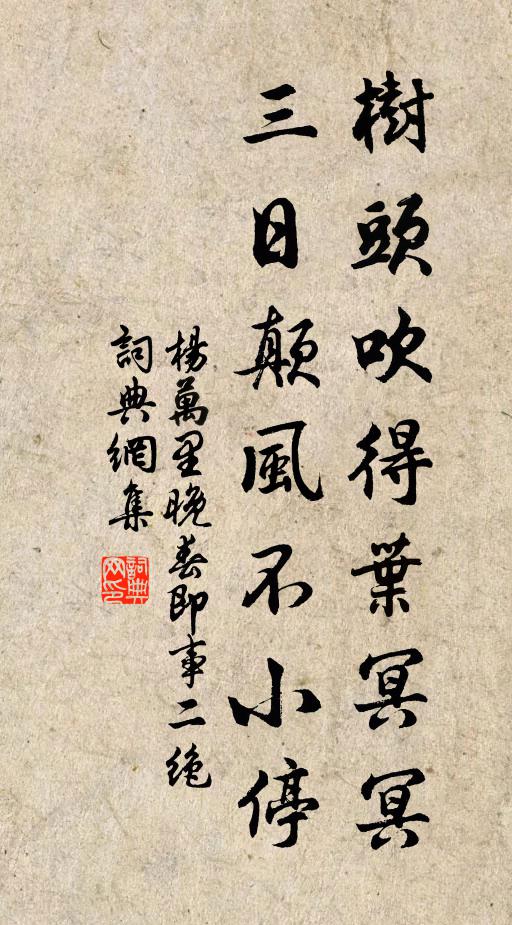 樹頭吹得葉冥冥
三日顛風不小停
楊萬里晚春即事二絶
詞典網集
詞典网印